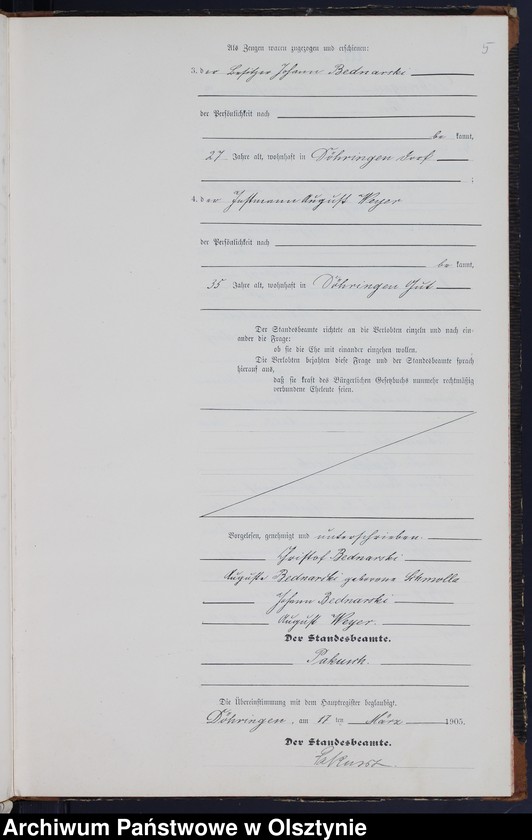 5
Als Zeugen waren zugezogen und erschienen:
3. der Besitzer Johann Bednarski
der Persönlichkeit nach
be kannt,
27 Jahre alt, wohnhaft in Döhringen Dorf
;
4. der Instmann August Weyer
der Persönlichkeit nach
be kannt,
35 Jahre alt, wohnhaft in Döhringen Gut
Der Standesbeamte richtete an die Verlobten einzeln und nach ein-
ander die Frage:
ob sie die Ehe mit einander eingehen wollen.
Die Verlobten bejahten diese Frage und der Standesbeamte sprach
hierauf aus,
daß sie kraft des Bürgerlichen Gesetzbuchs nunmehr rechtmäßig
verbundene Eheleute seien.
Vorgelesen, genehmigt und unterschrieben.
Christof Bednarski
Auguste Bednarski geborene Schmolla
Johann Bednarski
August Weyer.
Der Standesbeamte.
Die Übereinstimmung mit dem Hauptregister beglaubigt.
Döhringen, am 17 ten März 1905.
Der Standesbeamte.
Archiwum Państwowe w Olsztynie